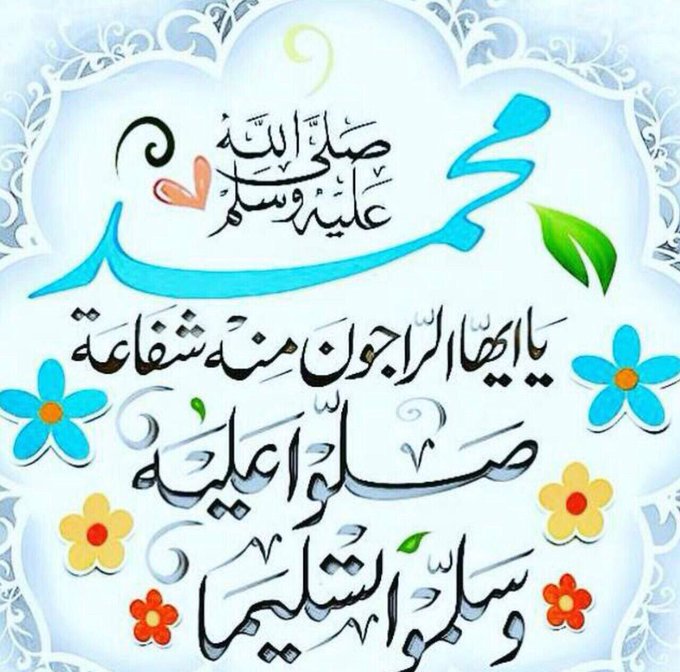 محمد
صَلَّى اللهُ
عَلَيْهِ وَسَلَّمْ
يَا ايهّا الرّاجونَ مِنْهُ شَفَاعَة
صَلّوا عَلَيْه
وَسَلّموا تسْليمَا